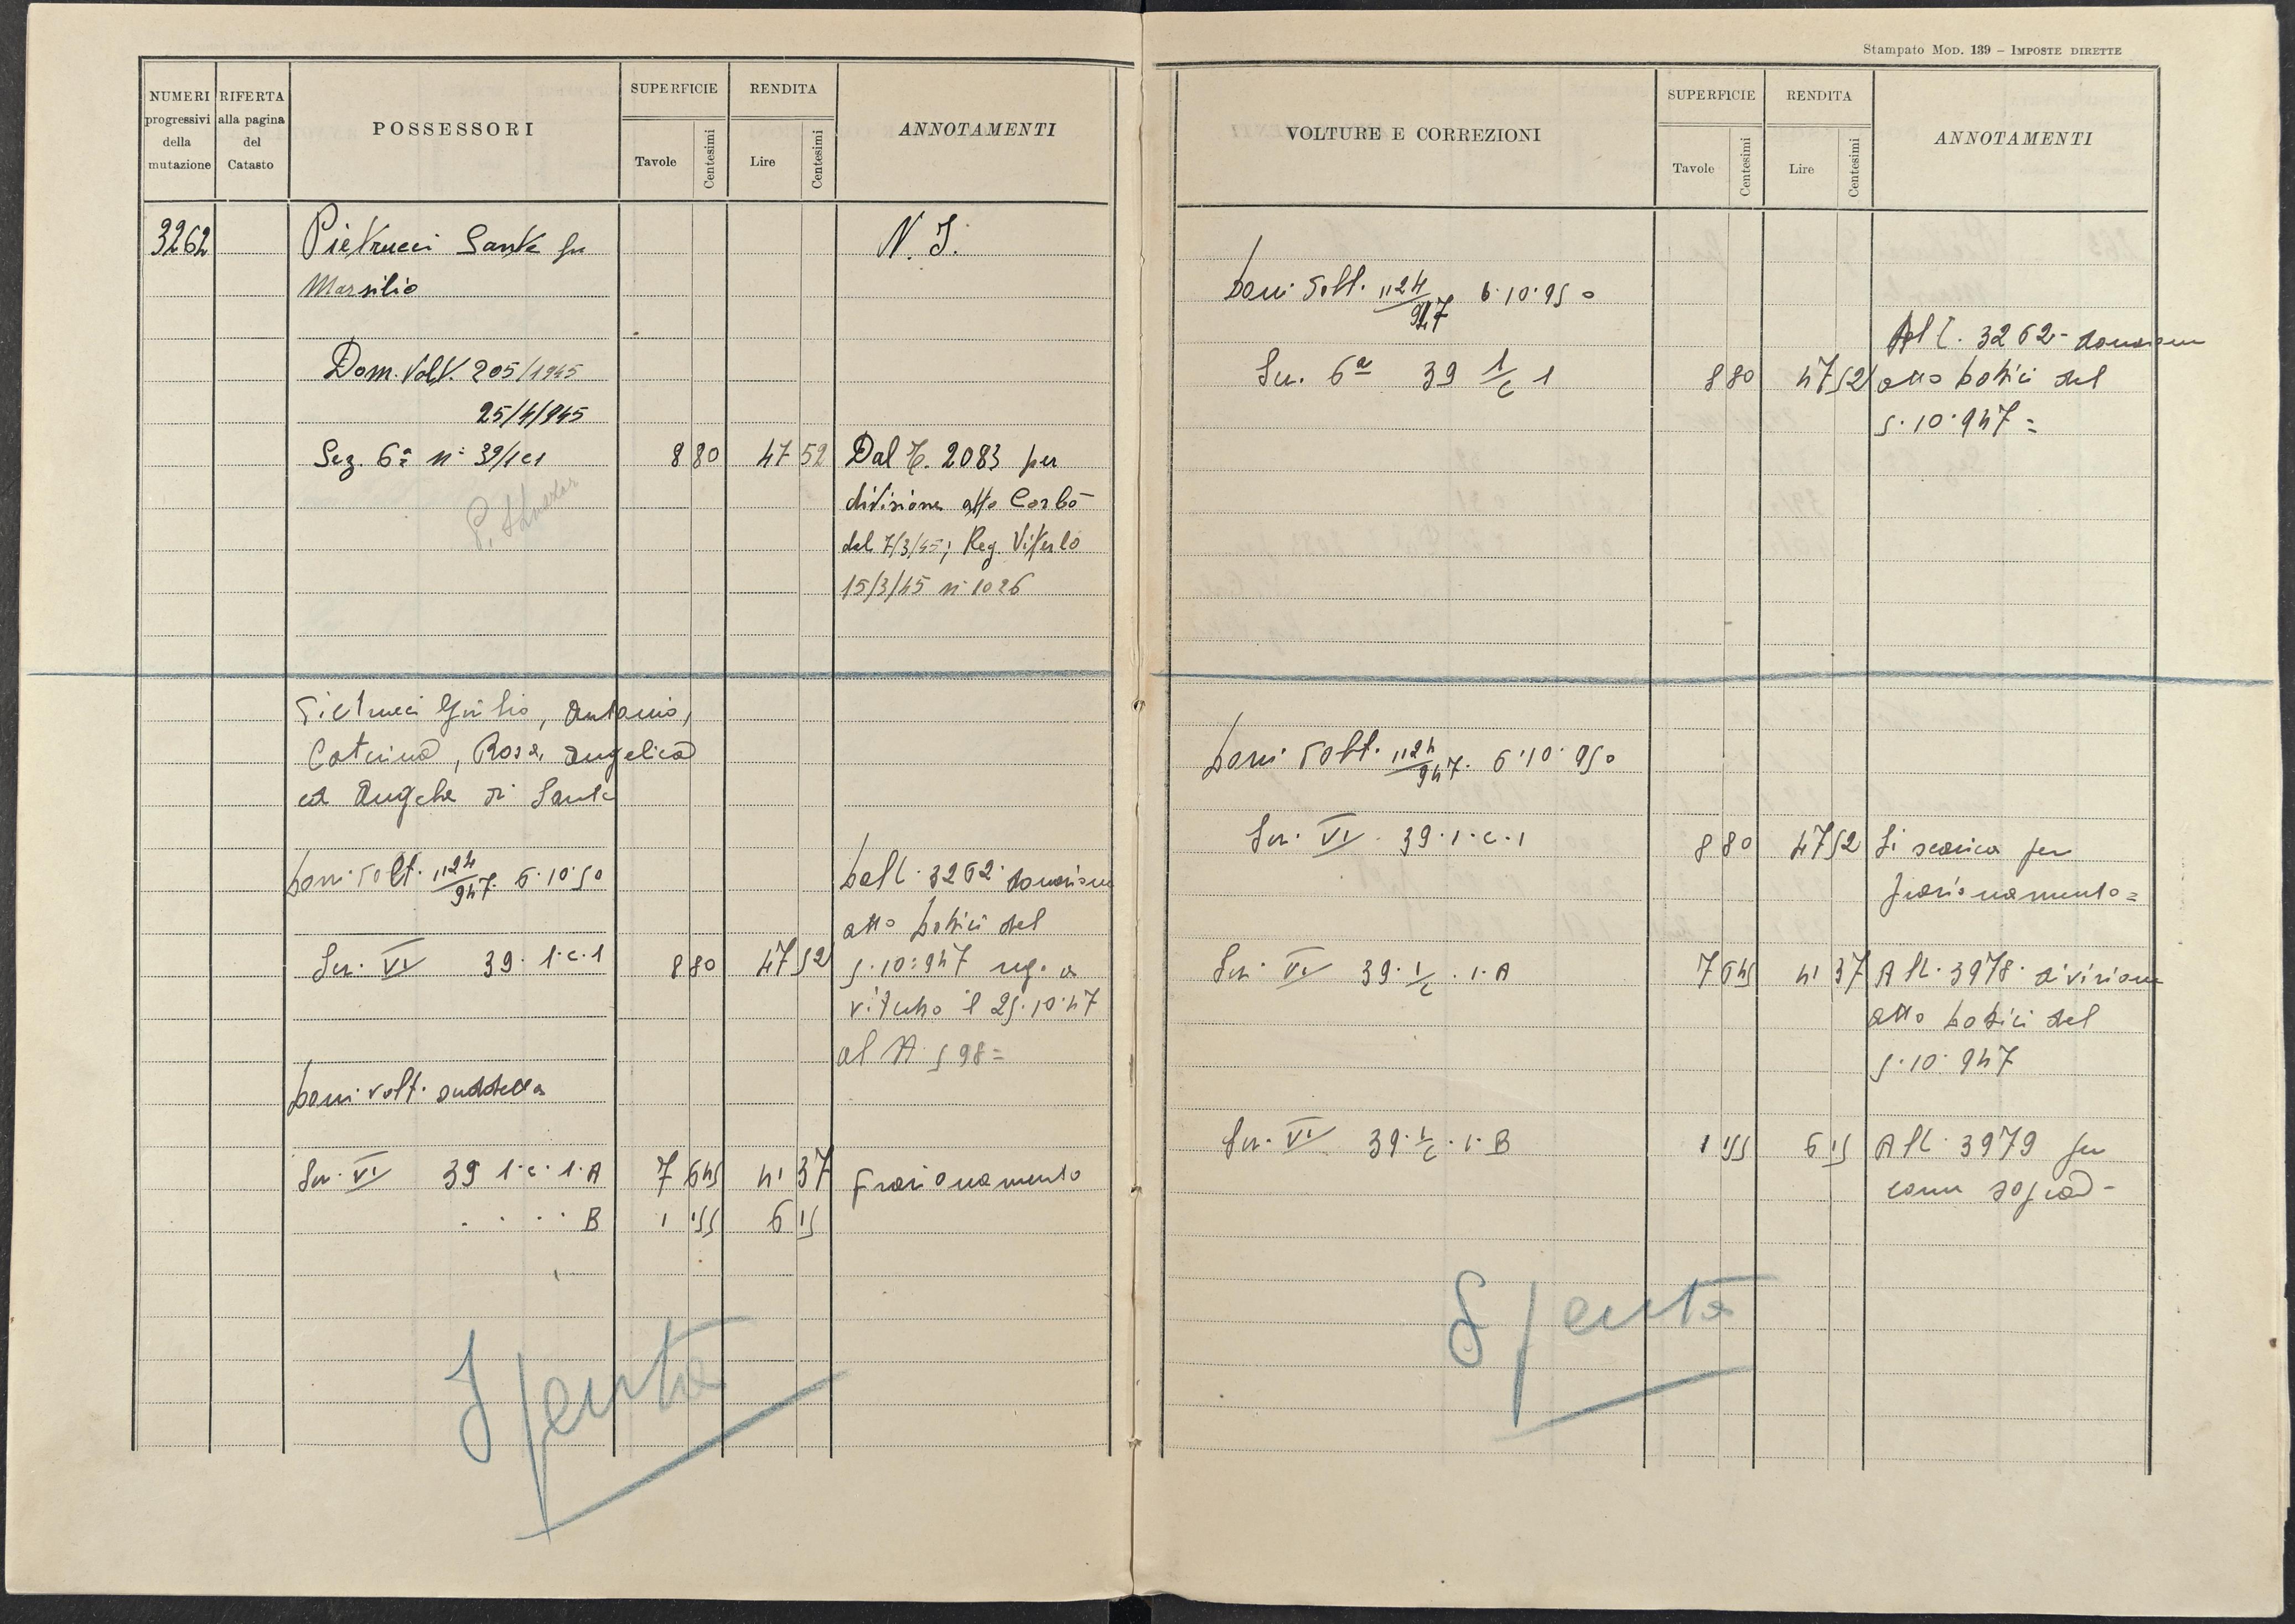 Stampato Mod. 139 – IMPOSTE DIRETTE
NUMERI progressivi della mutazione
RIFERTA alla pagina del Catasto
POSSESSORI
SUPERFICIE
Tavole
Centesimi
RENDITA
Lire
Centesimi
ANNOTAMENTI
3262
Pietrucci Sante fu
N. I.
Marsilio
Dom. Volt. 205/1945
25/4/945
Sez. 6ª nº 39/1c1 8 80 47 52 Dal C. 2083 per
divisione atto Corbò
del 7/3/45; Reg. Viterbo
15/3/45 nº 1026
Pietrucci Giulio, Antonio,
Caterina, Rosa, Angelica
ed Angela di Sante
Dom. Volt. 1124/947. 6.10.50
Dal C. 3262. donazione
atto Dobici del
Sez. VI 39. 1.c.1 8 80 47 52 5.10.947 reg. a
Viterbo il 25.10.47
al N. 598=
Dom. volt. suddetta
Sez. VI 39 1.c.1.A 7 645 41 37 Frazionamento
. . . . B 1 155 6 15
Spenta
VOLTURE E CORREZIONI
SUPERFICIE
Tavole
Centesimi
RENDITA
Lire
Centesimi
ANNOTAMENTI
Dom. Volt. 1124/947 6.10.950
Al C. 3262- donazione
Sez. 6ª 39 1/c 1 8 80 47 52 atto Dobici del
5.10.947=
Dom. Volt. 1124/947. 6.10.950
Sez. VI. 39.1.c.1 8 80 47 52 Si scarica per
frazionamento=
Sez. VI 39. 1/c . 1.A 7 645 41 37 Al C. 3978. divisione
atto Dobici del
5.10.947
Sez. VI 39. 1/c . 1. B 1 155 6 15 Al C. 3979 per
come sopra-
Spenta